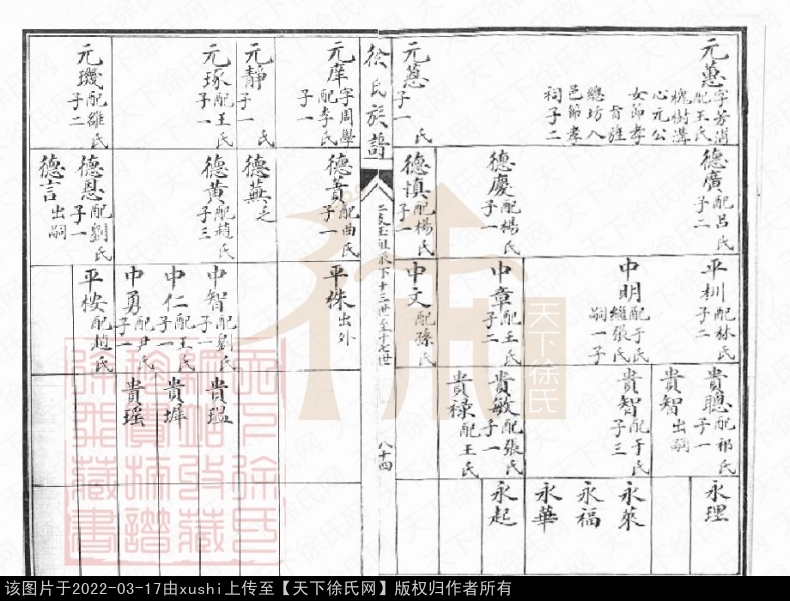 元蕙 字芳谰
配王氏
槐樹溝
心元公
女節孝
旨旌
總坊入
邑節孝
祠子二
元蔥 氏
子一
德廣 配呂氏
子二
德慶 配楊氏
子一
德慎 配楊氏
子一
平釧 配林氏
子二
中明 配于氏
繼張氏
嗣一子
中章 配王氏
子二
中文 配孫氏
貴聰 配祁氏
子一
貴智 出嗣
貴智 配于氏
子三
貴敏 配張氏
子一
貴祿 配王氏
永理
永萊
永福
永華
永起
徐氏族譜
二支玉祖派下十三世至十七世
八十四
元庠 字周學
配李氏
子一
元靜 氏
子一
元琢 配王氏
子一
元璣 配雒氏
子二
德蕢 配曲氏
子一
德蕪 乏
德黄 配趙氏
子三
德恩 配劉氏
子一
德言 出嗣
平株 出外
中智 配劉氏
子一
中仁 配王氏
子一
中勇 配尹氏
子一
平桉 配趙氏
貴瑥
貴墀
貴瑤
天下徐氏网
该图片于2022-03-17由xushi上传至【天下徐氏网】版权归作者所有